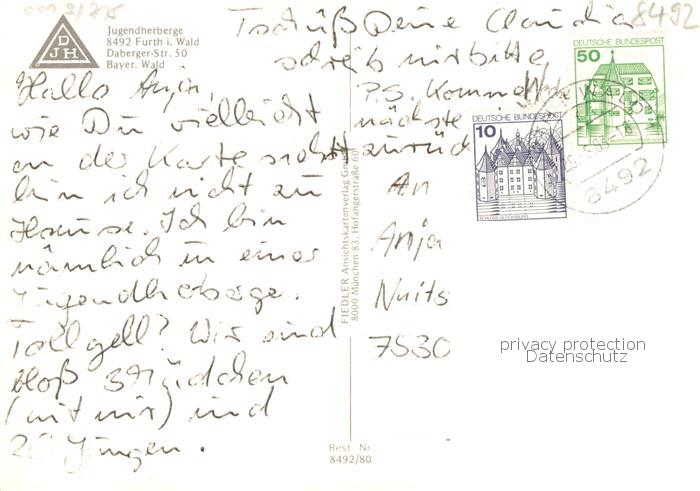 8492
DJH
Jugendherberge
8492 Furth i. Wald
Daberger-Str. 50
Bayer. Wald
Hallo Anja,
wie Du vielleicht
an der Karte siehst
bin ich nicht zu
Hause. Ich bin
nämlich in einer
Jugendherberge.
Toll gell? Wir sind
bloß 3 Mädchen
(mit mir) und
20 Jungen.
Tschüß Deine Claudia
schreib mir bitte
P.S. Komme
nächste Woche
zurück
An
Anja
Nuits
7530
DEUTSCHE BUNDESPOST
50
DEUTSCHE BUNDESPOST
10
SCHLOSS GLÜCKSBURG
8492
FIEDLER Ansichtskartenverlag GmbH
8000 München 83, Hofangerstraße 60
privacy protection
Datenschutz
Best Nr
8492/80